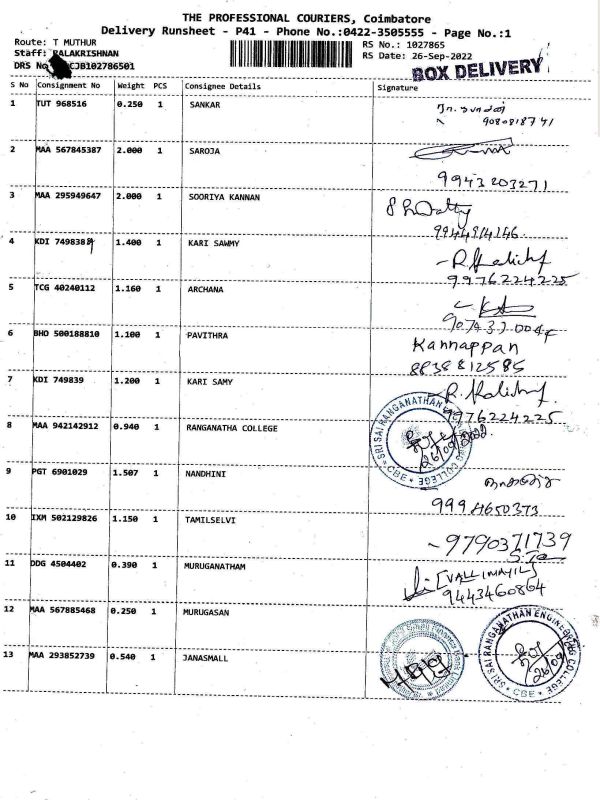 THE PROFESSIONAL COURIERS, Coimbatore
Delivery Runsheet - P41 - Phone No.:0422-3505555 - Page No.:1
Route: T MUTHUR RS No.: 1027865
Staff: BALAKRISHNAN RS Date: 26-Sep-2022
DRS No CJB102786501 BOX DELIVERY
S No Consignment No Weight PCS Consignee Details Signature
1 TUT 968516 0.250 1 SANKAR
2 MAA 567845387 2.000 1 SAROJA
9943203271
3 MAA 295949647 2.000 1 SOORIYA KANNAN
4 KDI 749838 1.400 1 KARI SAWMY
9976224225
5 TCG 40240112 1.160 1 ARCHANA
6 BHO 500188810 1.100 1 PAVITHRA Kannappan
8838812585
7 KDI 749839 1.200 1 KARI SAMY
9976224225
8 MAA 942142912 0.940 1 RANGANATHA COLLEGE
SRI SAI RANGANATHAN ENGINEERING COLLEGE CBE
26/09/2022
9 PGT 6901029 1.507 1 NANDHINI
10 IXM 502129826 1.150 1 TAMILSELVI
9790371739
11 DDG 4504402 0.390 1 MURUGANATHAM [VALLIMAYIL]
9443460864
12 MAA 567885468 0.250 1 MURUGASAN
13 MAA 293852739 0.540 1 JANASMALL
SRI SAI RANGANATHAN ENGINEERING COLLEGE CBE